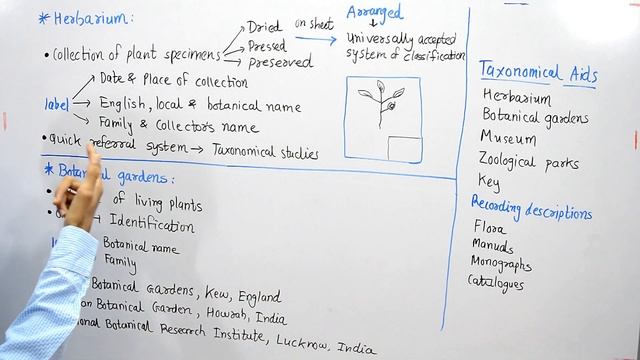 * Herbarium:
• Collection of plant specimens
Dried
Pressed
Preserved
on sheet
Arranged
↓
Universally accepted
system of classification
label
Date & Place of collection
English, local & botanical name
Family & Collector's name
• Quick referral system → Taxonomical studies
* Botanical gardens:
of living plants
→ Identification
Botanical name
Family
Botanical Gardens, Kew, England
Botanical Garden, Howrah, India
Botanical Research Institute, Lucknow, India
Taxonomical Aids
Herbarium
Botanical gardens
Museum
Zoological parks
Key
Recording descriptions
Flora
Manuals
Monographs
Catalogues